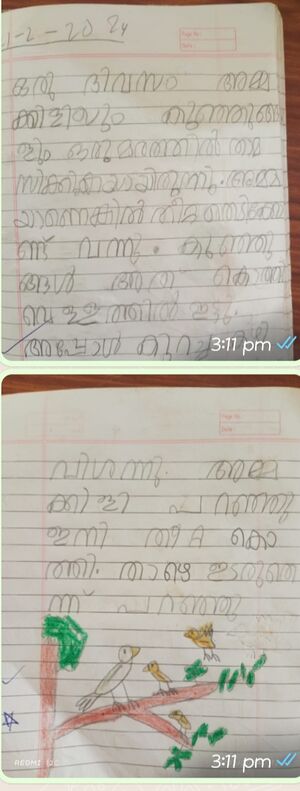 1-2-2024
Page No:
Date:
ഒരു ദിവസം അമ്മ
ക്കിളിയും കുഞ്ഞുങ്ങ
ളും ഒരു മരത്തിൽ താമ
സിക്കുകയായിരുന്നു. അമ്മ
വന്നു. കുഞ്ഞു
ങ്ങൾ അത് കൊത്തി
വെള്ളത്തിൽ ഇട്ടു.
അപ്പോൾ കുറച്ചു
3:11 pm
Page No:
Date:
വിശന്നു. അമ്മ
ക്കിളി പറഞ്ഞു
ഇനി തീറ്റ കൊ
ത്തി താഴെ ഇടരുതെ
ന്ന് പറഞ്ഞു
REDMI 12C
3:11 pm